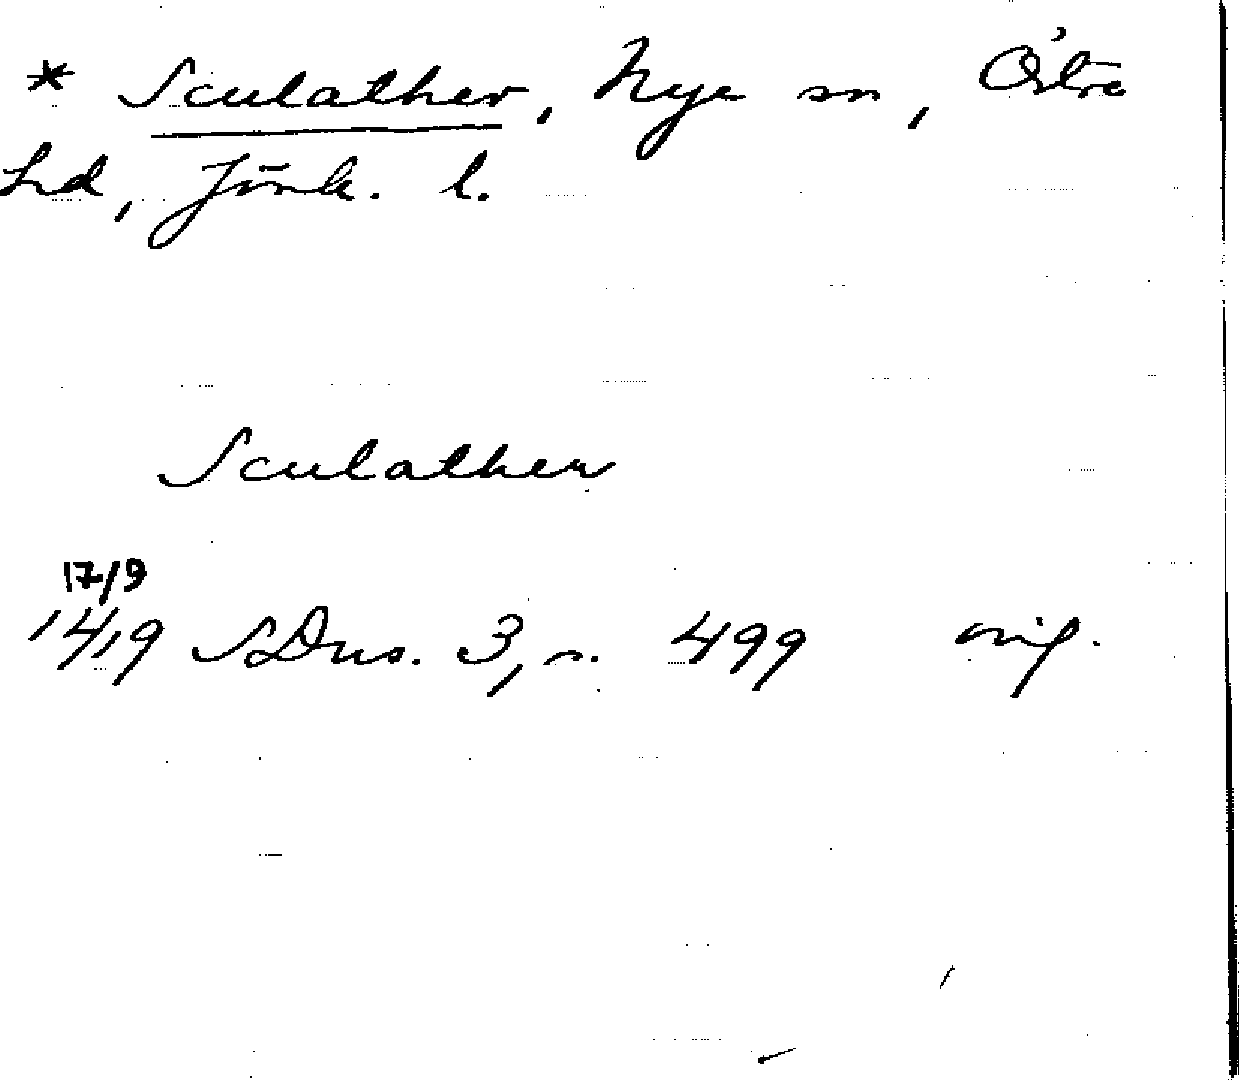 * Sculather, Nye sn, Östra
hd, Jönk. l.
Sculather
17/9
1419 SDns. 3, n. 499 orig.